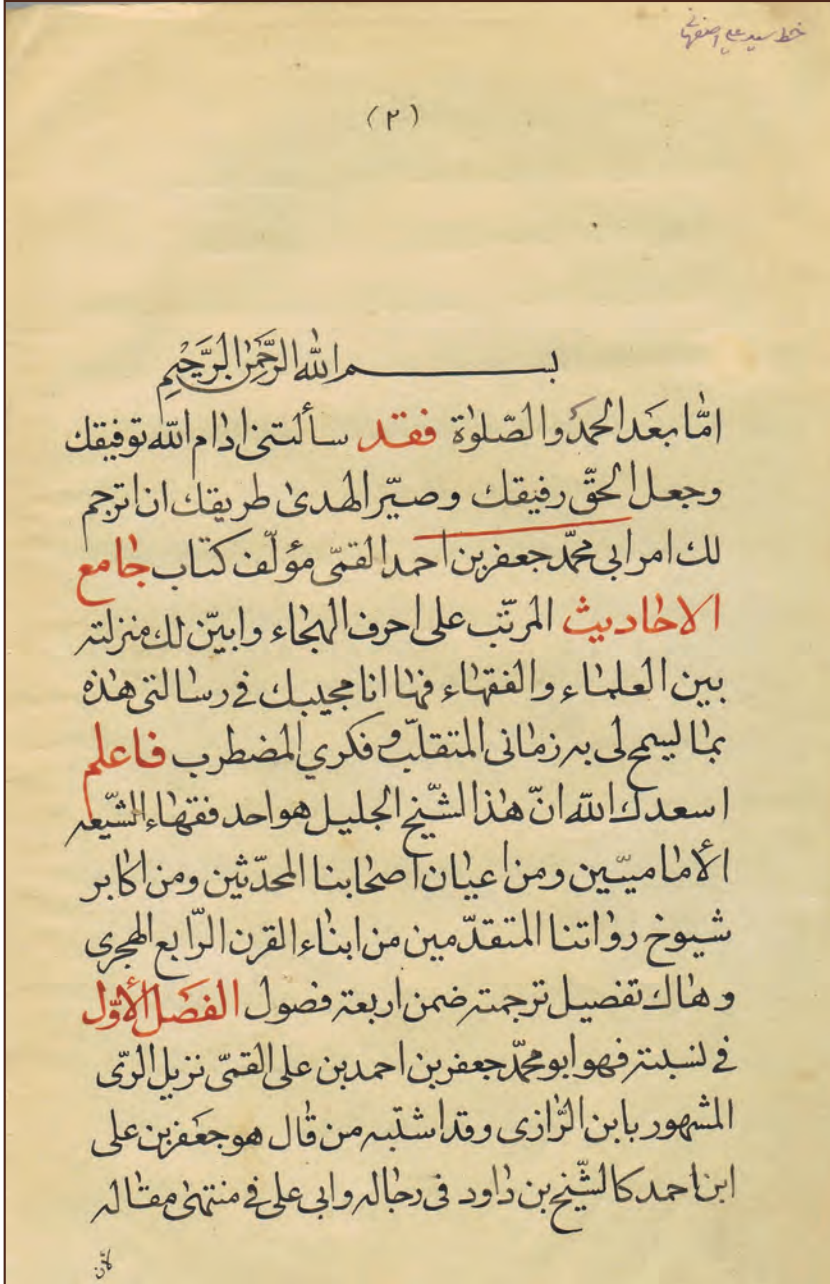 خط سید علی اصفهانی
(۲)
بسم الله الرَّحْمٰنِ الرَّحیْمِ
امّا بعَد الحمدُ والصّلوٰة فقد سألتنی ادام الله توفیقك
وجعل الحقّ رفیقك وصیّر الهدیٰ طریقك ان اترجم
لك امر ابی محمّد جعفر بن احمد القمّی مؤلّف کتاب جامع
الاحادیث المرتّب علی احرف الهجاء وابیّن لك منزلته
بین العلماء والفقهاء فها انا مجیبك فی رسالتی هذه
بما لیسمح لی به زمانی المتقلّب وفکري المضطرب فاعلم
اسعدك الله انّ هذا الشّیخ الجلیل هو احد فقهاء الشّیعه
الأمامیّین ومن اعیان اصحابنا المحدّثین ومن اکابر
شیوخ رواتنا المتقدّمین من ابناء القرن الرّابع الهجری
وهاك تفصیل ترجمته ضمن اربعة فصول الفصَل الأوّل
فی نسبته فهو ابو محمّد جعفر بن احمد بن علی القمّی نزیل الرّی
المشهور بابن الرّازی وقد اشتبه من قال هو جعَفر بن علی
ابن احمد کالشّیخ بن داود فی رجاله وابی علی فی منتهیٰ مقاله
لأنّ